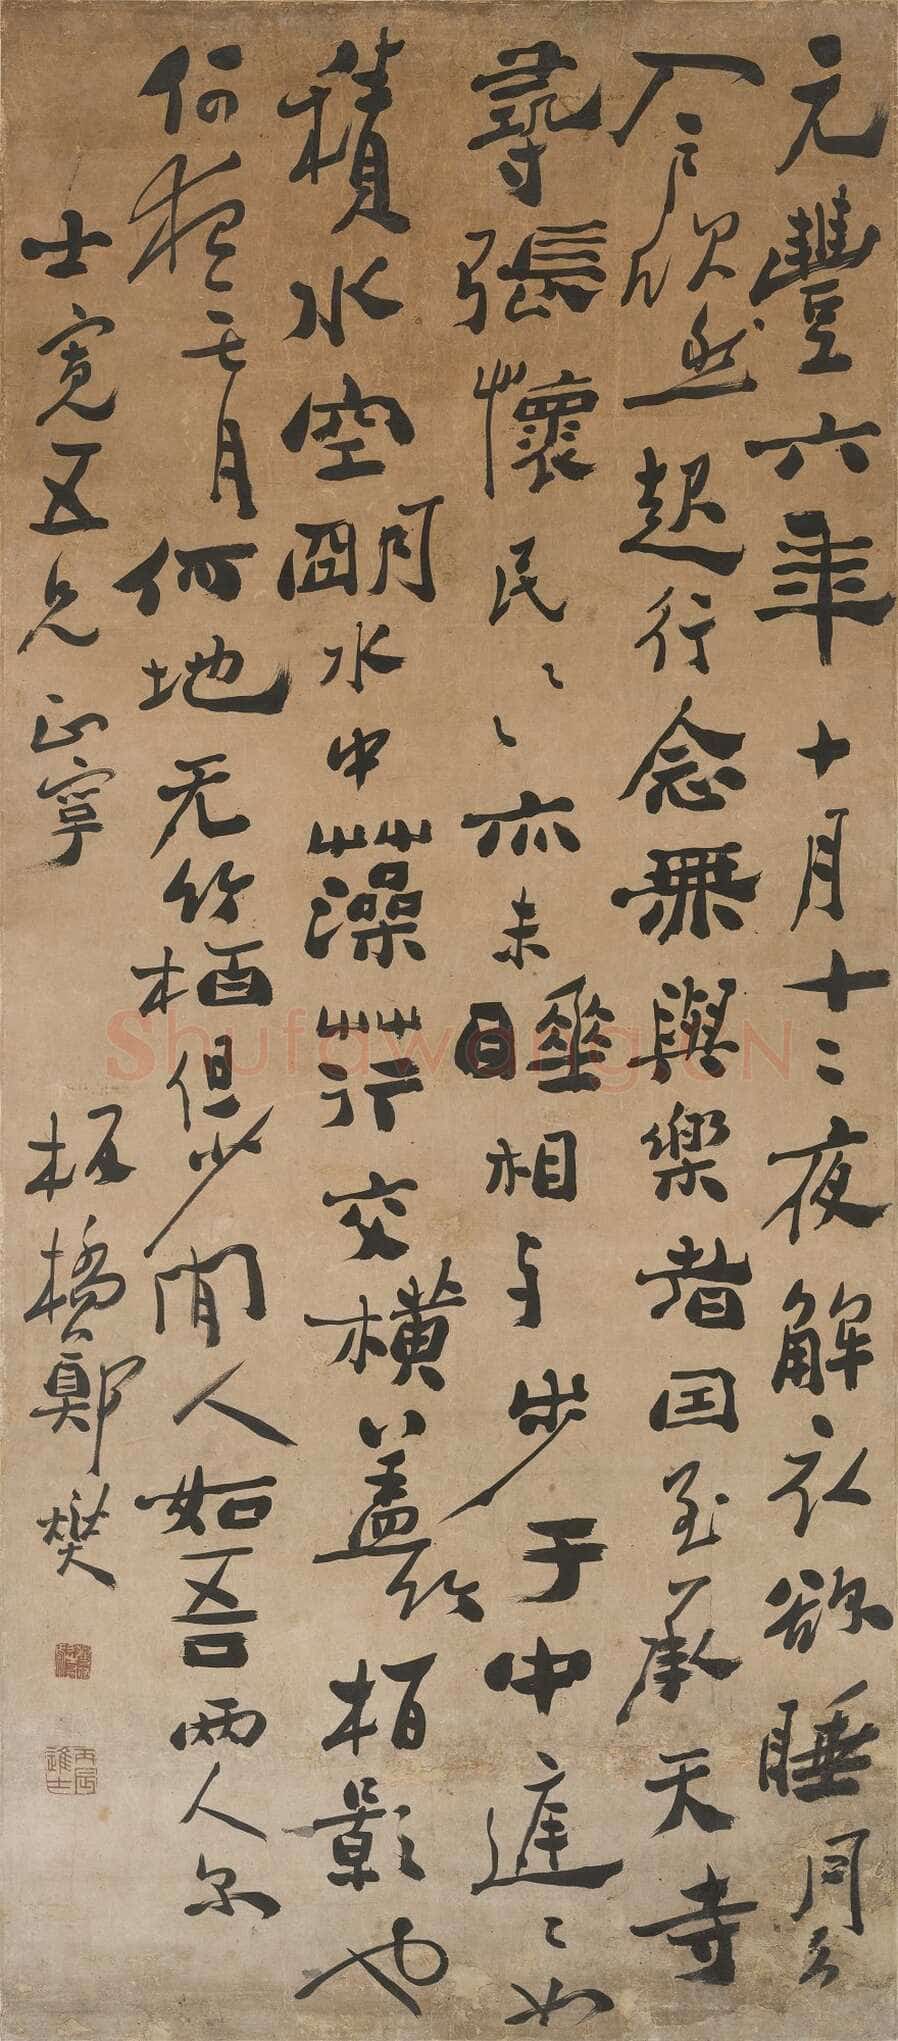 元豐六年十月十二夜解衣欲睡月色
入戶欣然起行念無與樂者因至承天寺
尋張懷民〻〻亦未寢相与步于中庭〻如
積水空明水中藻荇交橫蓋竹栢影也
何夜無月何地无竹栢但少閒人如吾兩人尔
士寬五兄正字
板橋鄭燮
丙辰進士
Shufawang.CN